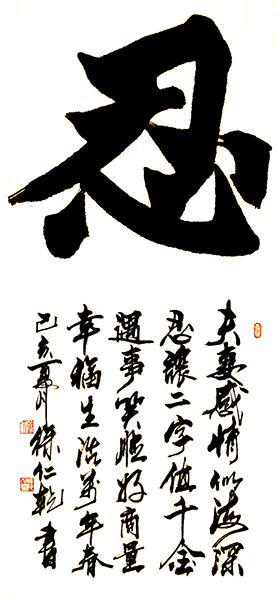 忍
夫妻感情似海深
忍让二字值千金
遇事冥膽好商量
幸福生活万年春
己亥夏月 徐仁乾书